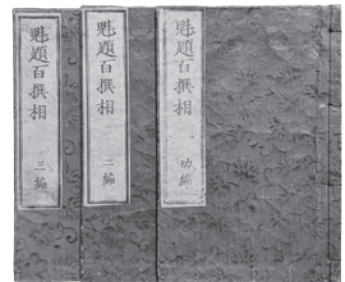 魁題百撰相 初編
魁題百撰相 二編
魁題百撰相 三編